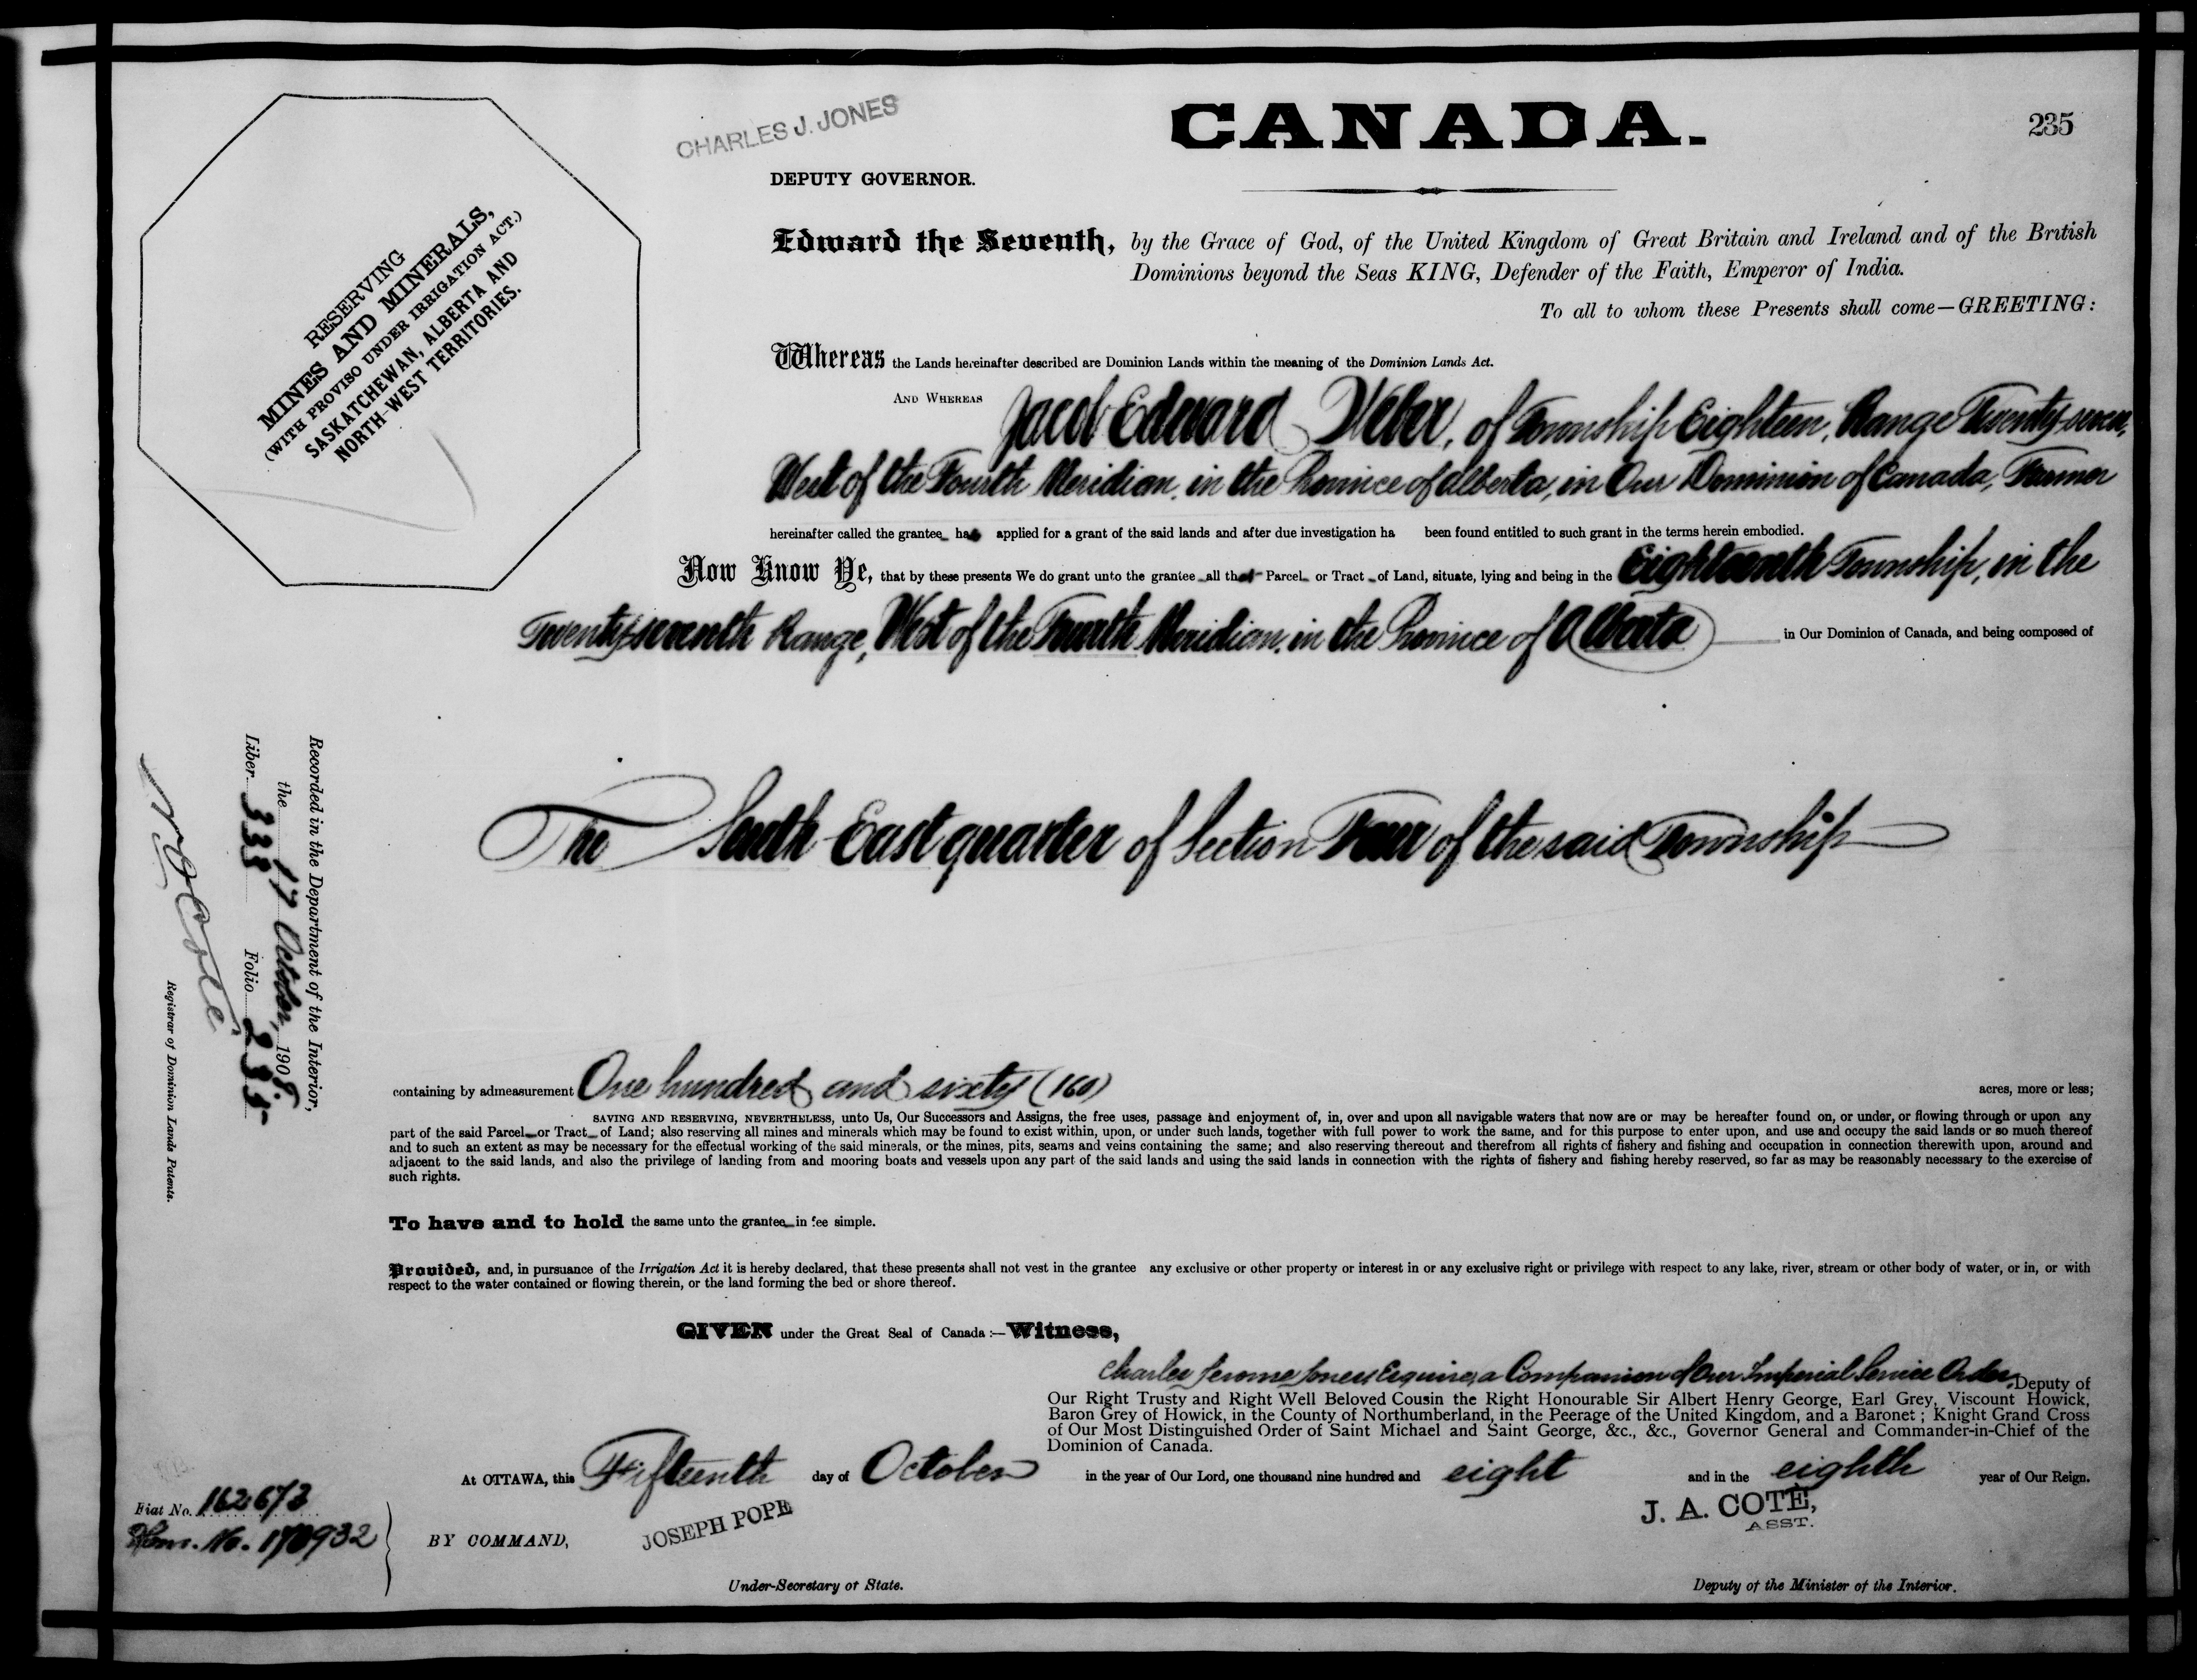 CHARLES J. JONES
CANADA.
235
DEPUTY GOVERNOR.
RESERVING
MINES AND MINERALS,
(WITH PROVISO UNDER IRRIGATION ACT.)
SASKATCHEWAN, ALBERTA AND
NORTH-WEST TERRITORIES.
Edward the Seventh, by the Grace of God, of the United Kingdom of Great Britain and Ireland and of the British
Dominions beyond the Seas KING, Defender of the Faith, Emperor of India.
To all to whom these Presents shall come—GREETING:
Whereas the Lands hereinafter described are Dominion Lands within the meaning of the Dominion Lands Act.
AND WHEREAS Jacob Edward Weber, of Township Eighteen, Range Twenty-seven,
West of the Fourth Meridian, in the Province of Alberta, in Our Dominion of Canada, Farmer
hereinafter called the grantee has applied for a grant of the said lands and after due investigation ha been found entitled to such grant in the terms herein embodied.
Now Know Ye, that by these presents We do grant unto the grantee all that Parcel or Tract of Land, situate, lying and being in the Eighteenth Township, in the
Twenty-seventh Range, West of the Fourth Meridian, in the Province of Alberta in Our Dominion of Canada, and being composed of
The South East quarter of Section Four of the said Township
Recorded in the Department of the Interior,
the 17 October, 1908
Liber 333 Folio 235
N O Coté
Registrar of Dominion Lands Patents.
containing by admeasurement One hundred and sixty (160) acres, more or less;
SAVING AND RESERVING, NEVERTHELESS, unto Us, Our Successors and Assigns, the free uses, passage and enjoyment of, in, over and upon all navigable waters that now are or may be hereafter found on, or under, or flowing through or upon any
part of the said Parcel or Tract of Land; also reserving all mines and minerals which may be found to exist within, upon, or under such lands, together with full power to work the same, and for this purpose to enter upon, and use and occupy the said lands or so much thereof
and to such an extent as may be necessary for the effectual working of the said minerals, or the mines, pits, seams and veins containing the same; and also reserving thereout and therefrom all rights of fishery and fishing and occupation in connection therewith upon, around and
adjacent to the said lands, and also the privilege of landing from and mooring boats and vessels upon any part of the said lands and using the said lands in connection with the rights of fishery and fishing hereby reserved, so far as may be reasonably necessary to the exercise of
such rights.
To have and to hold the same unto the grantee in fee simple.
Provided, and, in pursuance of the Irrigation Act it is hereby declared, that these presents shall not vest in the grantee any exclusive or other property or interest in or any exclusive right or privilege with respect to any lake, river, stream or other body of water, or in, or with
respect to the water contained or flowing therein, or the land forming the bed or shore thereof.
GIVEN under the Great Seal of Canada :—Witness,
Charles Jerome Jones Esquire, a Companion of Our Imperial Service Order, Deputy of
Our Right Trusty and Right Well Beloved Cousin the Right Honourable Sir Albert Henry George, Earl Grey, Viscount Howick,
Baron Grey of Howick, in the County of Northumberland, in the Peerage of the United Kingdom, and a Baronet ; Knight Grand Cross
of Our Most Distinguished Order of Saint Michael and Saint George, &c., &c., Governor General and Commander-in-Chief of the
Dominion of Canada.
At OTTAWA, this Fifteenth day of October in the year of Our Lord, one thousand nine hundred and eight and in the eighth year of Our Reign.
Fiat No. 162673
Hom. No. 170932
BY COMMAND,
JOSEPH POPE
Under-Secretary of State.
J. A. COTÉ,
ASST.
Deputy of the Minister of the Interior.